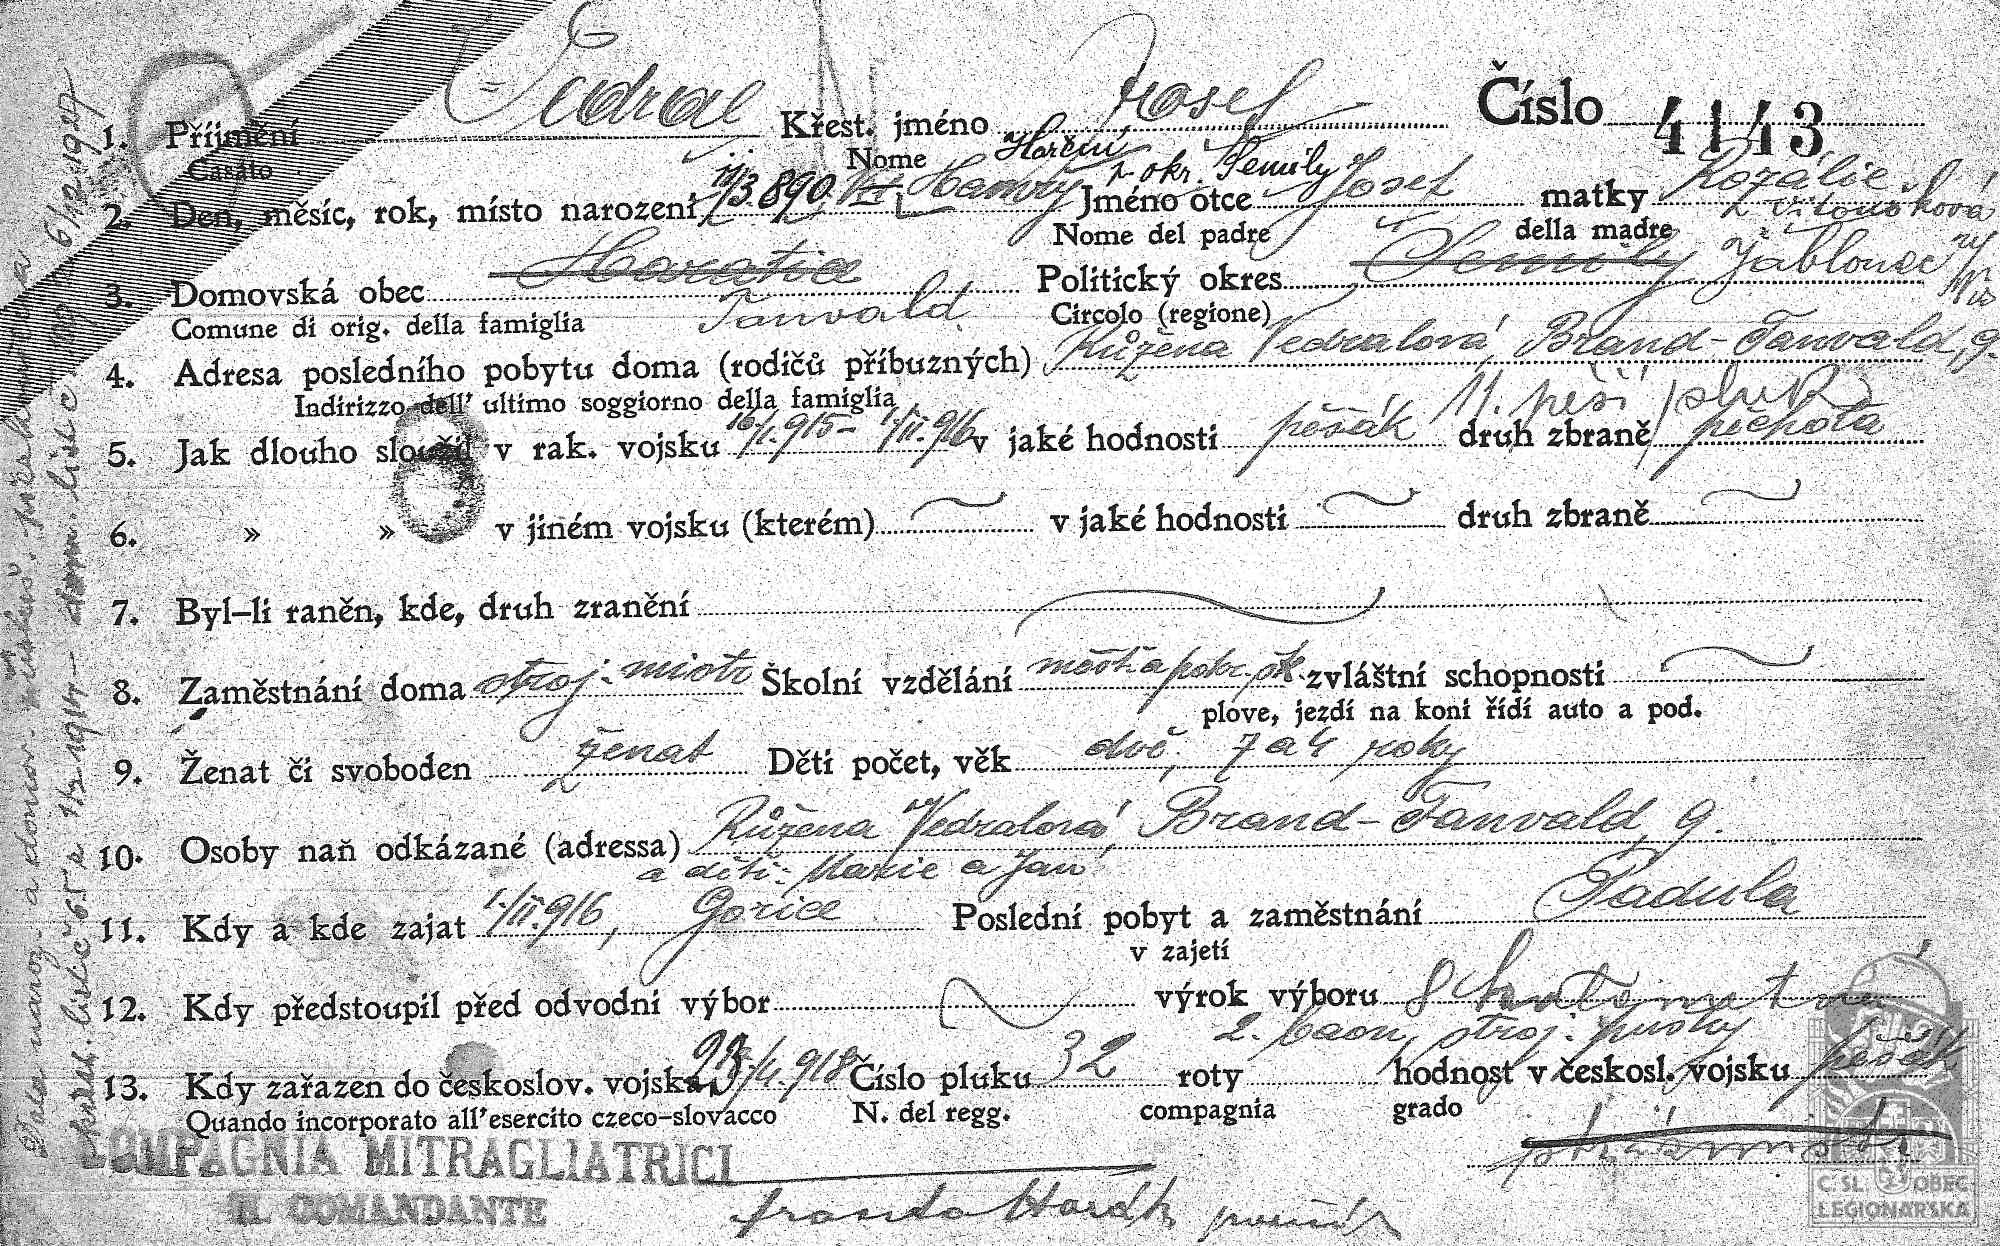 1. Příjmení Vedral Křest. jméno Josef Číslo 4143
Casato Nome Horční
z okr. Semily
2. Den, měsíc, rok, místo narození 11/3. 890. Hamry Jméno otce Josef matky Rozálie
Nome del padre della madre
Haratice Semily Jablonec n/
3. Domovská obec Tanvald Politický okres Nis
Comune di orig. della famiglia Circolo (regione)
4. Adresa posledního pobytu doma (rodičů příbuzných) Růžena Vedralová, Brand-Tanvald, 9.
Indirizzo dell' ultimo soggiorno della famiglia
11. pěší pluk
5. Jak dlouho sloužil v rak. vojsku 16/I. 915 - 1/II. 916 v jaké hodnosti pěšák druh zbraně pěchota
6. » » v jiném vojsku (kterém) v jaké hodnosti druh zbraně
7. Byl-li raněn, kde, druh zranění
8. Zaměstnání doma stroj. mistr Školní vzdělání měšť. a pokr. šk. zvláštní schopnosti
plove, jezdí na koni řídí auto a pod.
9. Ženat či svoboden ženat Děti počet, věk dvě, 7 a 4 roky
10. Osoby naň odkázané (adressa) Růžena Vedralová, Brand-Tanvald, 9.
a děti: Marie a Jan
11. Kdy a kde zajat 1./II. 916, Gorice Poslední pobyt a zaměstnání Padula
v zajetí
12. Kdy předstoupil před odvodní výbor výrok výboru
2. baon, stroj. pušky
13. Kdy zařazen do českoslov. vojska 23/4. 918 Číslo pluku 32 roty hodnost v českosl. vojsku pěšák
Quando incorporato all'esercito czeco-slovacco N. del regg. compagnia grado
COMPAGNIA MITRAGLIATRICI
IL COMANDANTE
Horák
Č. SL. OBEC
LEGIONÁŘSKÁ